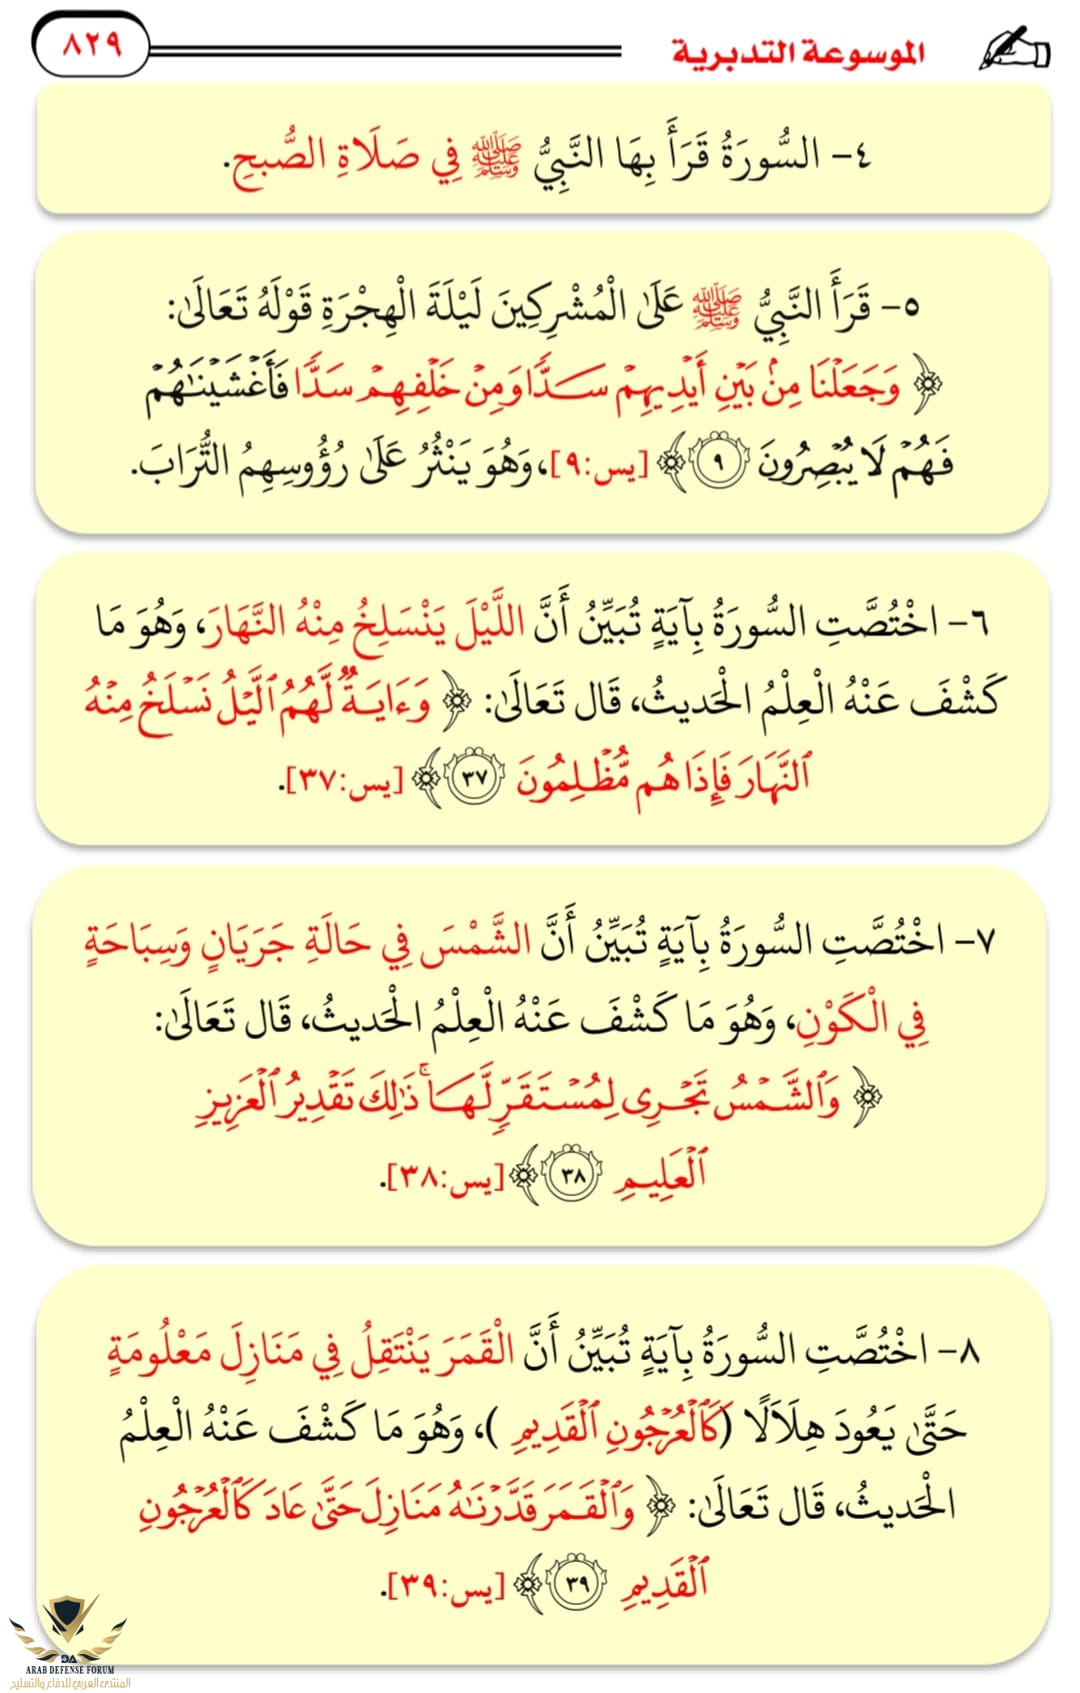 الموسوعة التدبرية
٨٢٩
٤- السُّورَةُ قَرَأَ بِهَا النَّبِيُّ ﷺ فِي صَلَاةِ الصُّبحِ.
٥- قَرَأَ النَّبِيُّ ﷺ عَلَىٰ الْمُشْرِكِينَ لَيْلَةَ الْهِجْرَةِ قَوْلَهُ تَعَالَىٰ:
﴿ وَجَعَلْنَا مِنۢ بَيْنِ أَيْدِيهِمْ سَدًّا وَمِنْ خَلْفِهِمْ سَدًّا فَأَغْشَيْنَـٰهُمْ
فَهُمْ لَا يُبْصِرُونَ ٩ ﴾ [يس:٩]، وَهُوَ يَنْثُرُ عَلَىٰ رُؤُوسِهِمُ التُّرَابَ.
٦- اخْتُصَّتِ السُّورَةُ بِآيَةٍ تُبَيِّنُ أَنَّ اللَّيْلَ يَنْسَلِخُ مِنْهُ النَّهَارَ، وَهُوَ مَا
كَشْفَ عَنْهُ الْعِلْمُ الْحَديثُ، قَال تَعَالَىٰ: ﴿ وَءَايَةٌ لَّهُمُ ٱلَّيْلُ نَسْلَخُ مِنْهُ
ٱلنَّهَارَ فَإِذَا هُم مُّظْلِمُونَ ٣٧ ﴾ [يس:٣٧].
٧- اخْتُصَّتِ السُّورَةُ بِآيَةٍ تُبَيِّنُ أَنَّ الشَّمْسَ فِي حَالَةِ جَرَيَانٍ وَسِبَاحَةٍ
فِي الْكَوْنِ، وَهُوَ مَا كَشْفَ عَنْهُ الْعِلْمُ الْحَديثُ، قَال تَعَالَىٰ:
﴿ وَٱلشَّمْسُ تَجْرِى لِمُسْتَقَرٍّ لَّهَا ۚ ذَٰلِكَ تَقْدِيرُ ٱلْعَزِيزِ
ٱلْعَلِيمِ ٣٨ ﴾ [يس:٣٨].
٨- اخْتُصَّتِ السُّورَةُ بِآيَةٍ تُبَيِّنُ أَنَّ الْقَمَرَ يَنْتَقِلُ فِي مَنَازِلَ مَعْلُومَةٍ
حَتَّىٰ يَعُودَ هِلَالًا (كَٱلْعُرْجُونِ ٱلْقَدِيمِ )، وَهُوَ مَا كَشْفَ عَنْهُ الْعِلْمُ
الْحَديثُ، قَال تَعَالَىٰ: ﴿ وَٱلْقَمَرَ قَدَّرْنَـٰهُ مَنَازِلَ حَتَّىٰ عَادَ كَٱلْعُرْجُونِ
ٱلْقَدِيمِ ٣٩ ﴾ [يس:٣٩].
DA
ARAB DEFENSE FORUM
المنتدى العربي للدفاع والتسليح